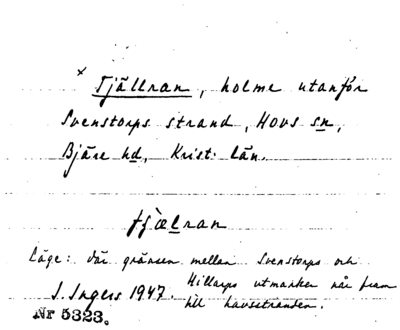 × Tjällran, holme utanför
Svenstorps strand, Hovs sn,
Bjäre hd, Krist. län.
tjæ̀lran
Läge: där gränsen mellan Svenstorps och
Hillarps utmarker når fram
till havsstranden.
I. Ingers 1947.
Nr 5323.